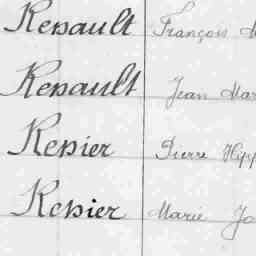 Renault François M
Renault Jean Mar
Renier Pierre Hipp
Renier Marie Jo